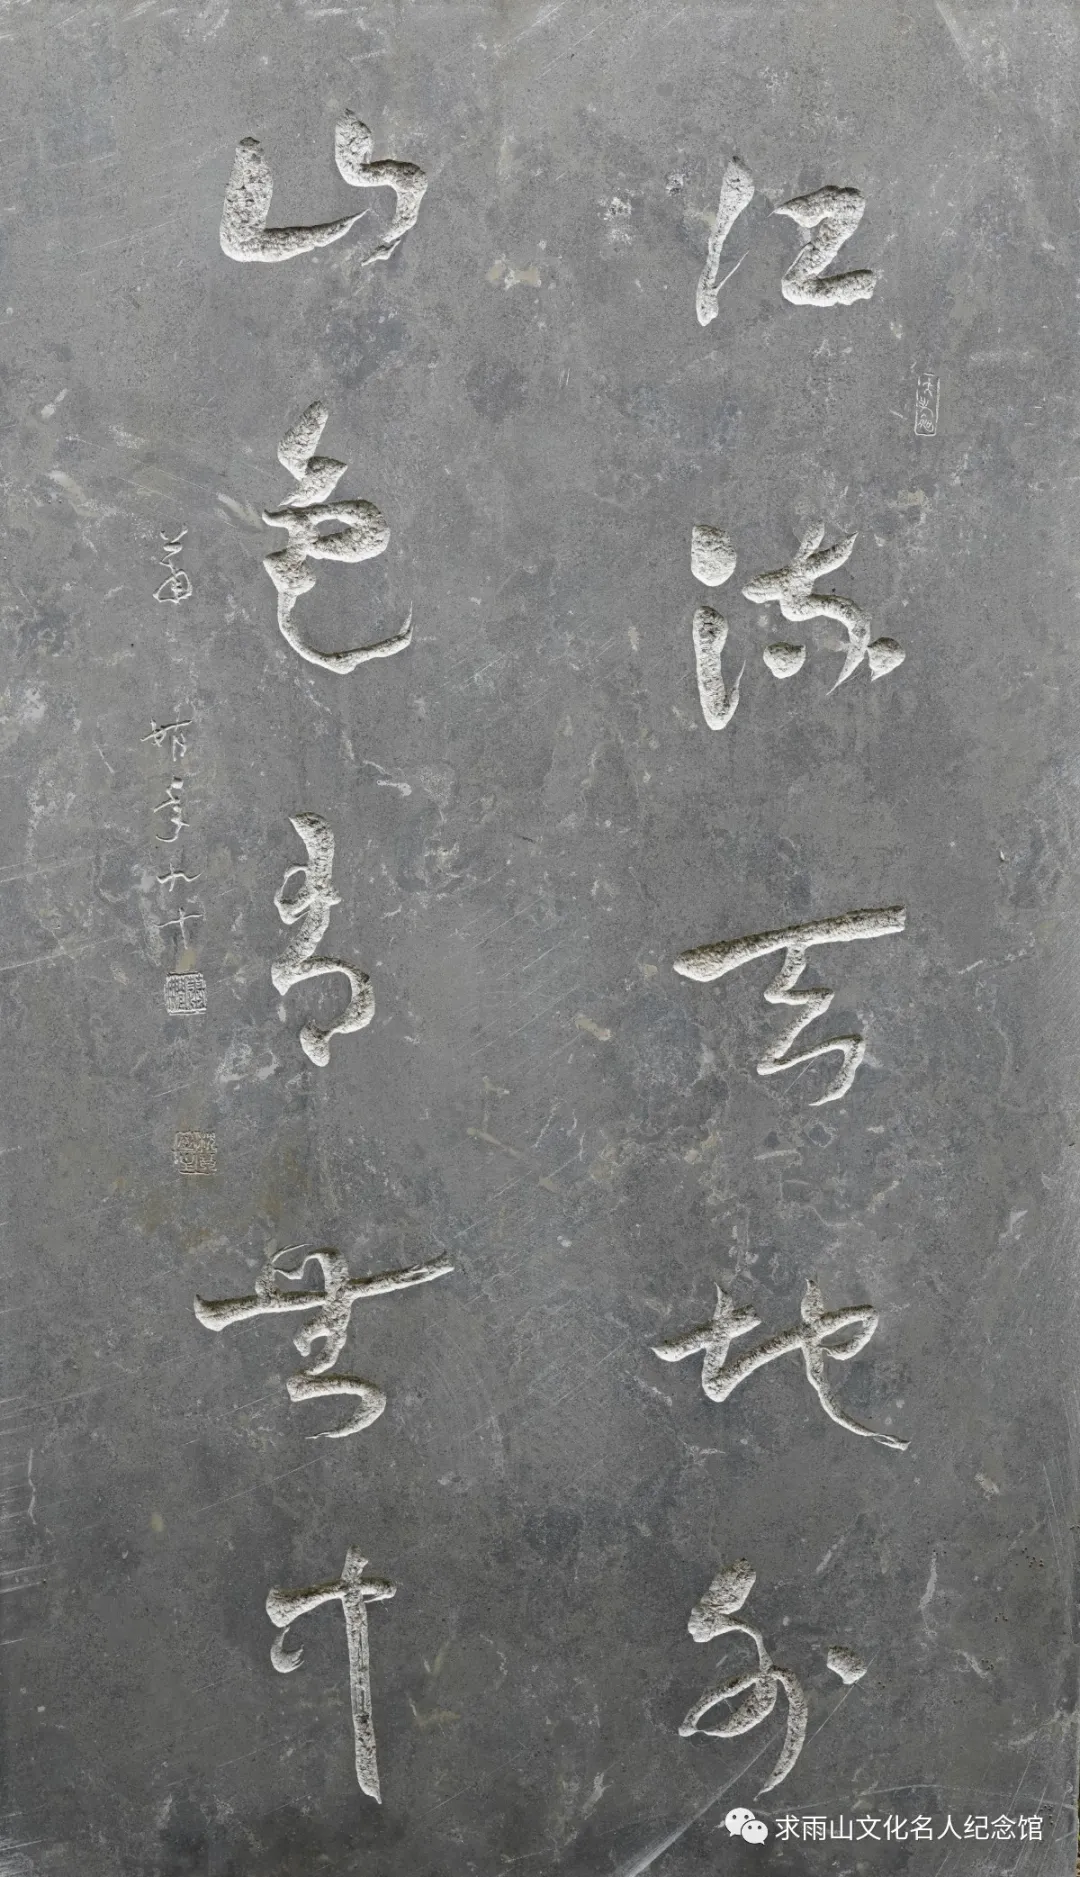 江流天地外
山色有無中
蕭嫻年九十
求雨山文化名人纪念馆